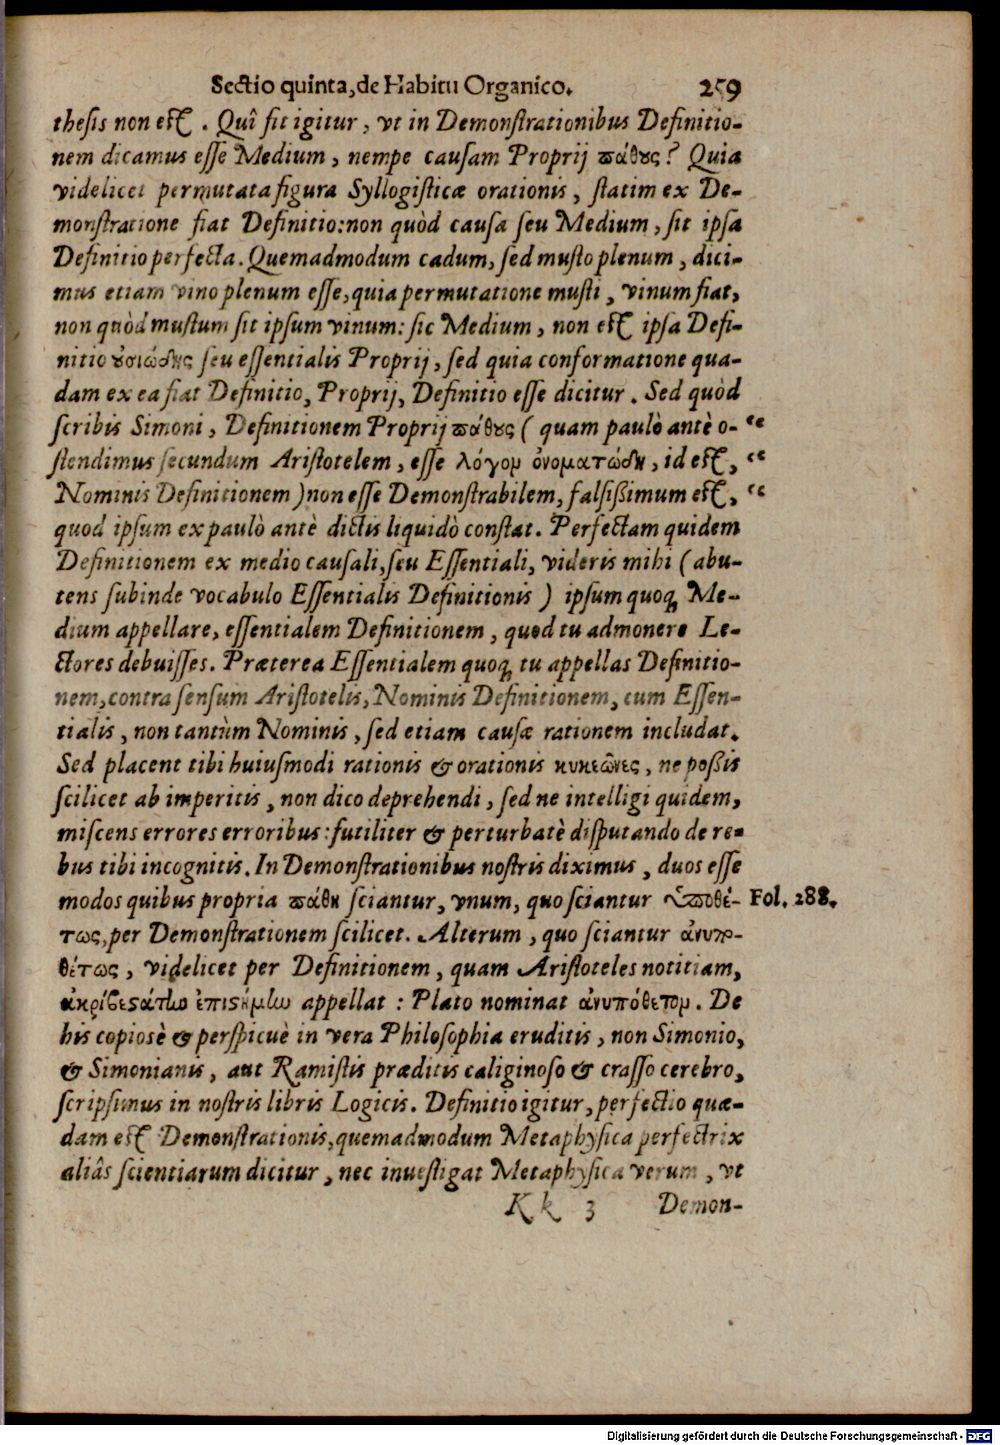 Sectio quinta, de Habitu Organico. 259
thesis non est. Quî fit igitur, vt in Demonstrationibus Definitio-
nem dicamus esse Medium, nempe causam Proprij πάθους? Quia
videlicet permutata figura Syllogisticæ orationis, statim ex De-
monstratione fiat Definitio: non quòd causa seu Medium, sit ipsa
Definitio perfecta. Quemadmodum cadum, sed musto plenum, dici-
mus etiam vino plenum esse, quia permutatione musti, vinum fiat,
non quòd mustum sit ipsum vinum: sic Medium, non est ipsa Defi-
nitio οὐσιώδης seu essentialis Proprij, sed quia conformatione qua-
dam ex ea fiat Definitio, Proprij, Definitio esse dicitur. Sed quòd
scribis Simoni, Definitionem Proprij πάθους (quam paulò antè o- “
stendimus secundum Aristotelem, esse λόγον ὀνοματώδη, id est, “
Nominis Definitionem) non esse Demonstrabilem, falsißimum est, “
quod ipsum ex paulò antè dictis liquidò constat. Perfectam quidem
Definitionem ex medio causali, seu Essentiali, videris mihi (abu-
tens subinde vocabulo Essentialis Definitionis) ipsum quoq; Me-
dium appellare, essentialem Definitionem, quod tu admonere Le-
ctores debuisses. Præterea Essentialem quoq; tu appellas Definitio-
nem, contra sensum Aristotelis, Nominis Definitionem, cum Essen-
tialis, non tantùm Nominis, sed etiam causæ rationem includat.
Sed placent tibi huiusmodi rationis & orationis κυκεῶνες, ne poßis
scilicet ab imperitis, non dico deprehendi, sed ne intelligi quidem,
miscens errores erroribus: futiliter & perturbatè disputando de re-
bus tibi incognitis. In Demonstrationibus nostris diximus, duos esse
modos quibus propria πάθη sciantur, vnum, quo sciantur ὑποθέ- Fol. 288.
τως, per Demonstrationem scilicet. Alterum, quo sciantur ἀνυπο-
θέτως, videlicet per Definitionem, quam Aristoteles notitiam,
ἀκριβεστάτην ἐπιστήμην appellat: Plato nominat ἀνυπόθετον. De
his copiosè & perspicuè in vera Philosophia eruditis, non Simonio,
& Simonianis, aut Ramistis præditis caliginoso & crasso cerebro,
scripsimus in nostris libris Logicis. Definitio igitur, perfectio quæ-
dam est Demonstrationis, quemadmodum Metaphysica perfectrix
aliâs scientiarum dicitur, nec inuestigat Metaphysica verum, vt
Kk 3 Demon-
Digitalisierung gefördert durch die Deutsche Forschungsgemeinschaft - DFG